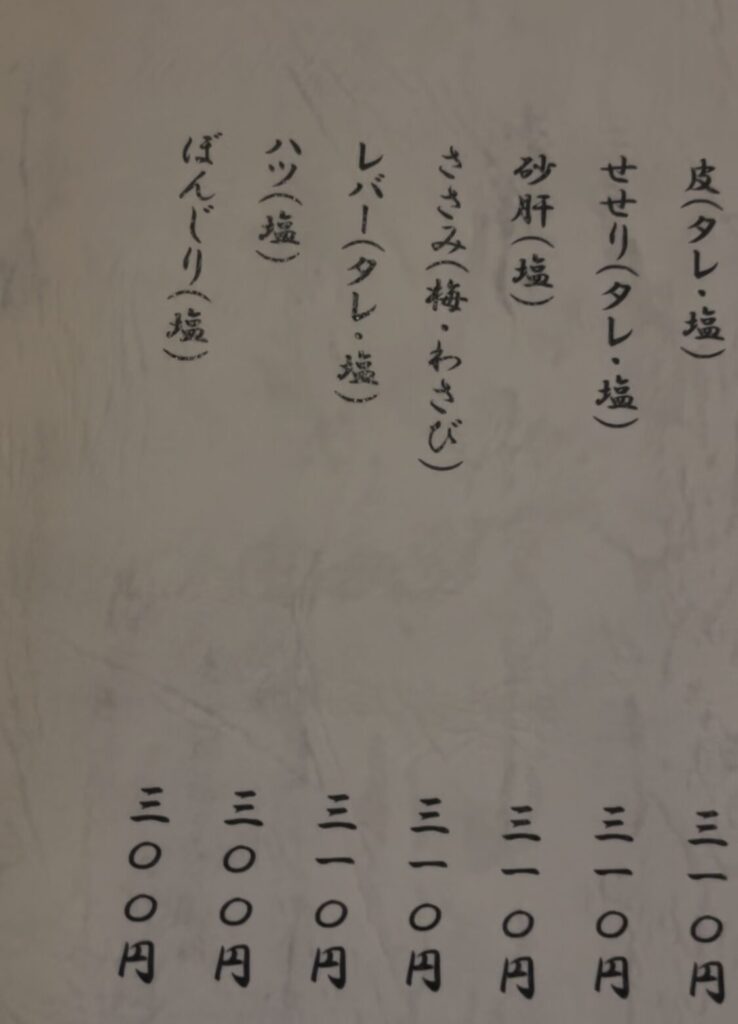 皮(タレ・塩)
三一〇円
せせり(タレ・塩)
三一〇円
砂肝(塩)
三一〇円
ささみ(梅・わさび)
三一〇円
レバー(タレ・塩)
三一〇円
ハツ(塩)
三〇〇円
ぼんじり(塩)
三〇〇円